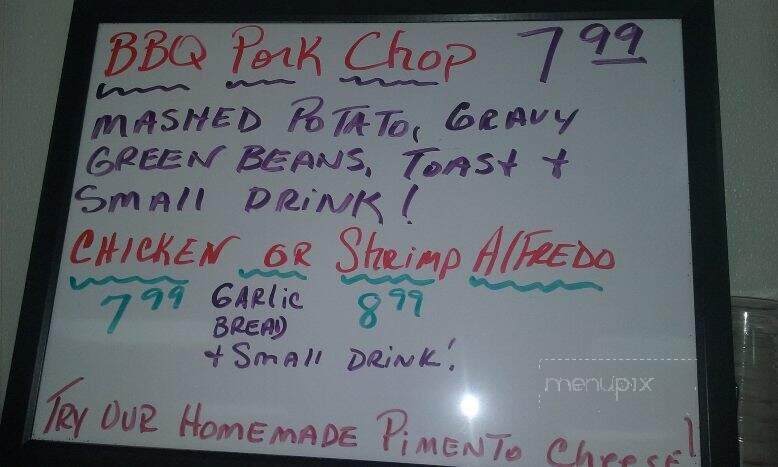 BBQ Pork Chop 7 99
MASHED POTATO, GRAVY
GREEN BEANS, TOAST +
SMAll DRINK!
CHICKEN OR Shrimp AlFREDO
7 99 GARlic 8 99
BREAD
+ SMAll DRINK!
menupix
TRY OUR HOMEMADE PIMENTO Cheese!